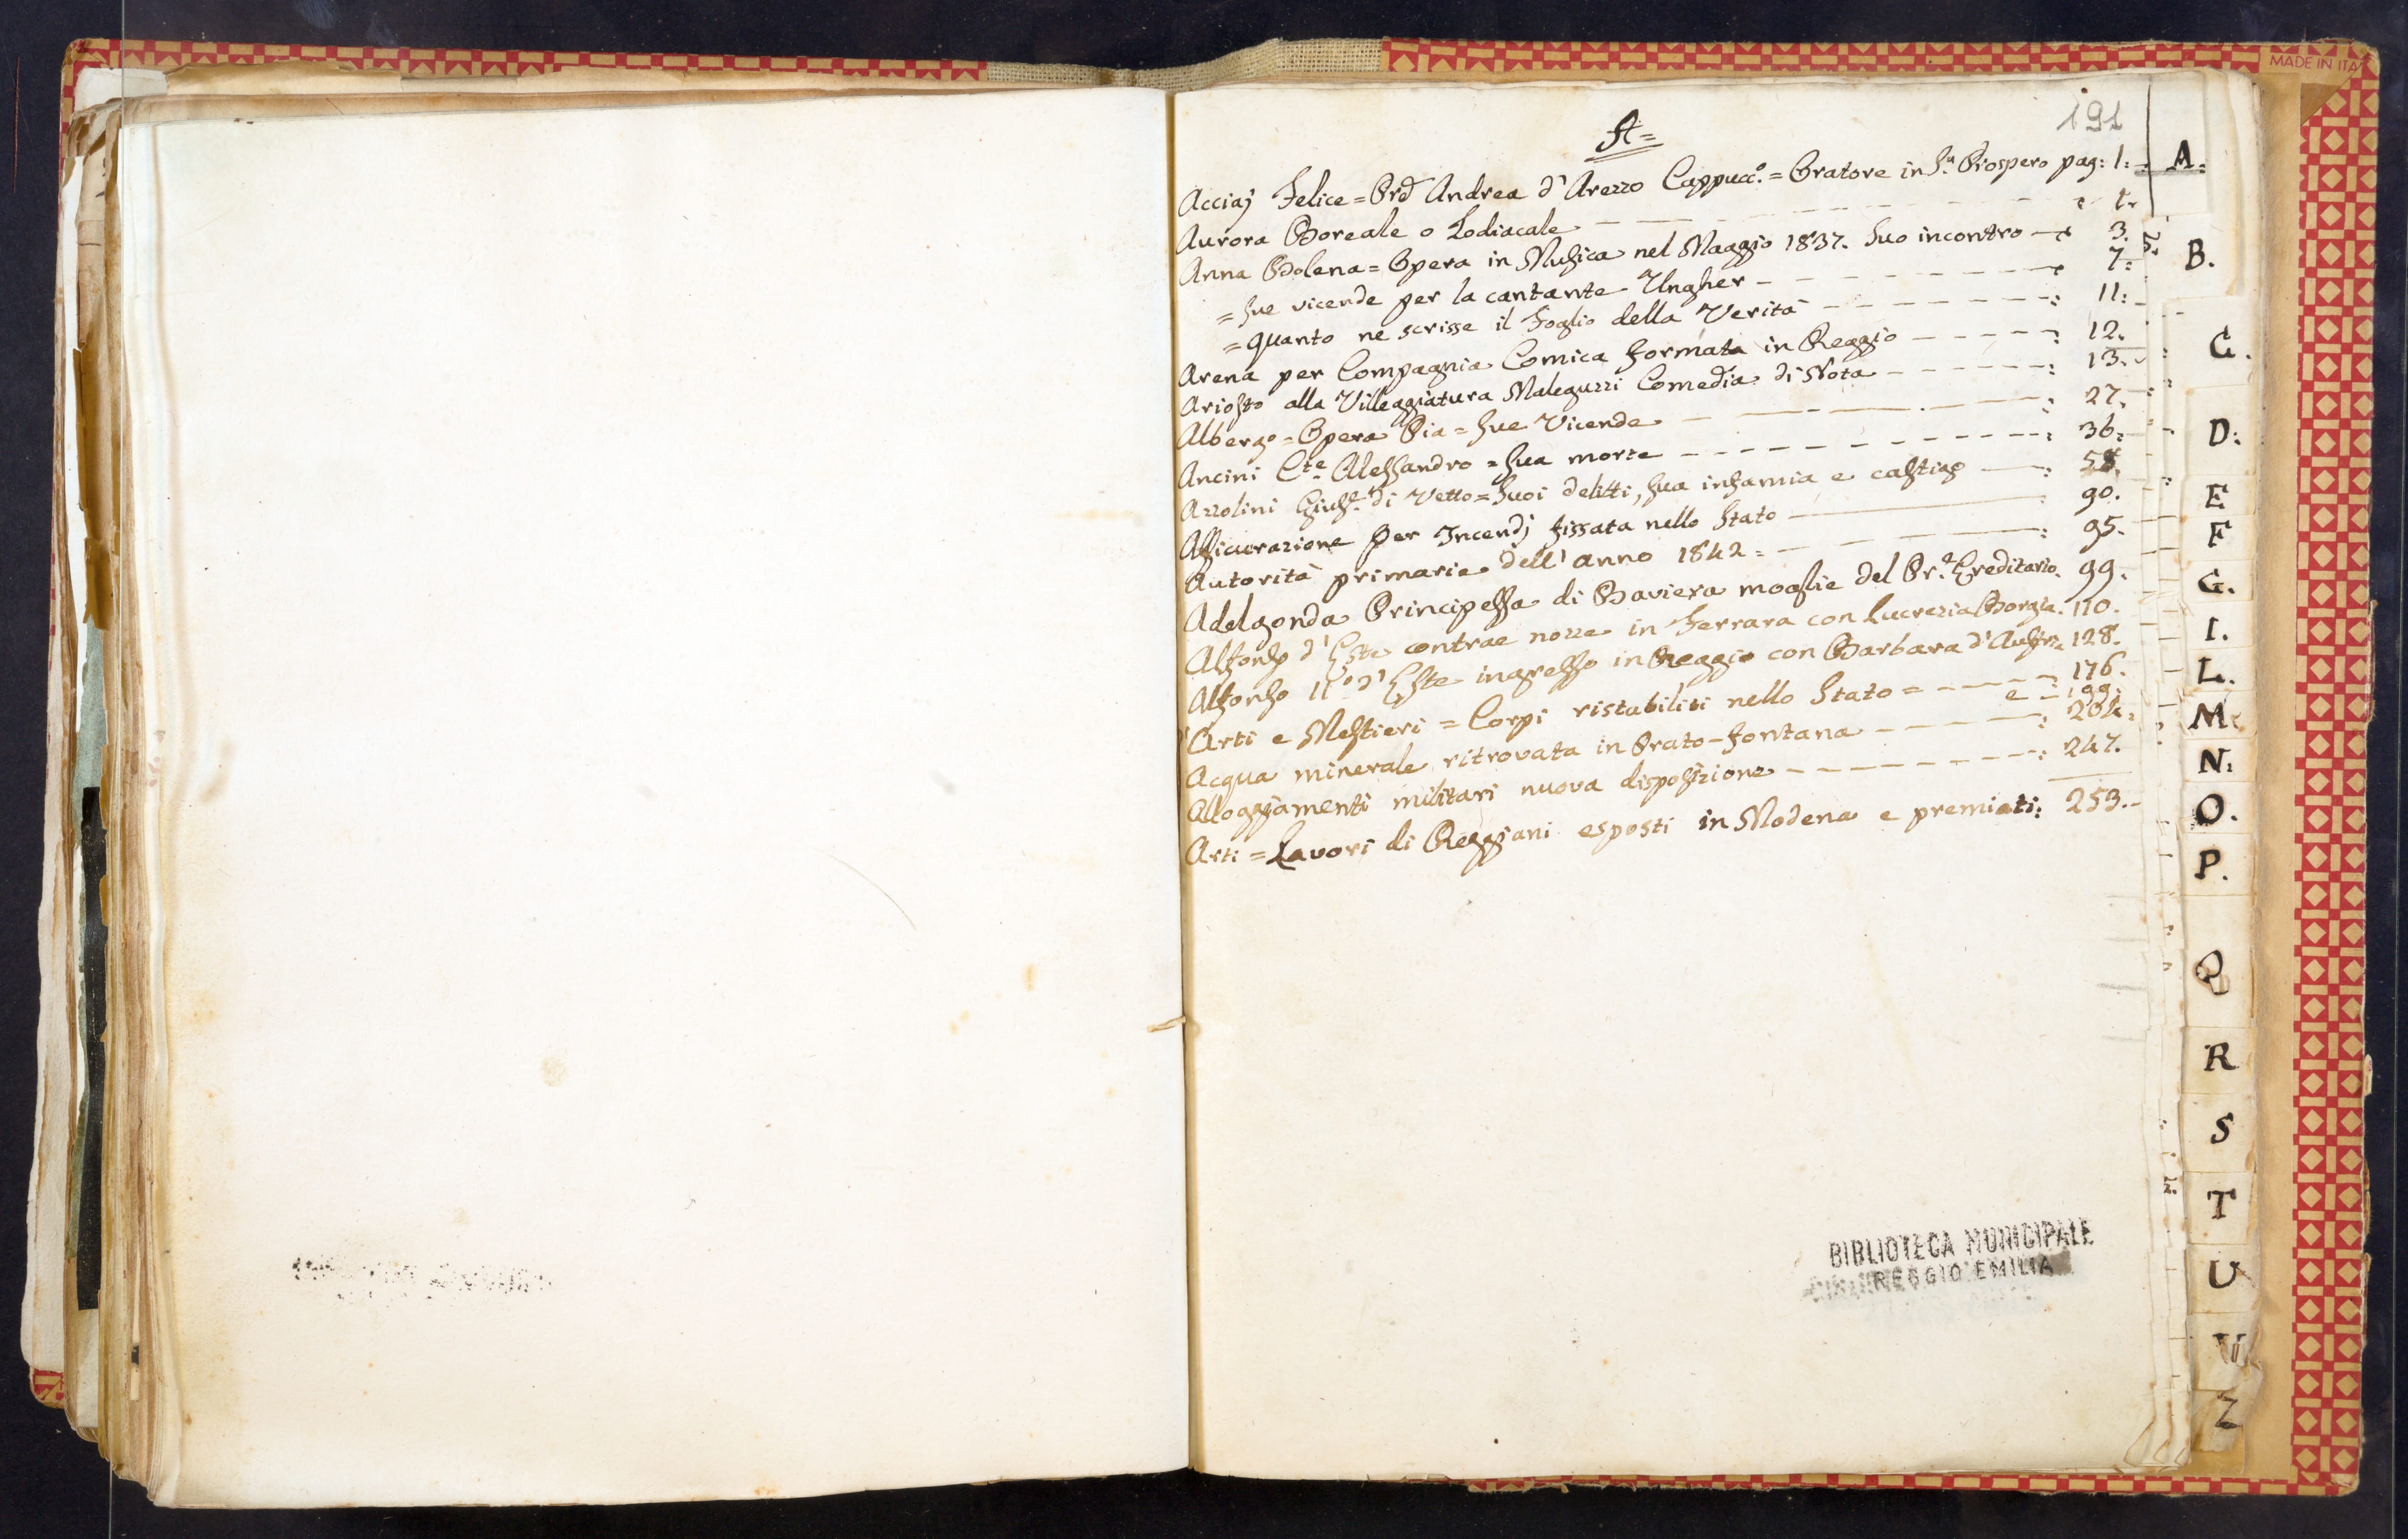 MADE IN ITA
191
A=
Acciaj Felice = Ord Andrea d'Arezzo Cappucc.º = Oratore in S.n Prospero pag: 1:
Aurora Boreale o Zodiacale — — — — : 1.
Anna Bolena = Opera in Musica nel Maggio 1837. Suo incontro — : 3.
= Sue vicende per la cantante Ungher — — — — : 7:
= quanto ne scrisse il Foglio della Verità — — — — : 11:
Arena per Compagnia Comica formata in Reggio — — — — : 12.
Ariosto alla Villeggiatura Maleguzzi Comedia di Nota — — — — : 13.
Albergo = Opera Pia = Sue Vicende — — — — : 27.
Ancini C.te Alessandro = Sua morte — — — — : 36:
Azzolini Gius.e di Vetto = Suoi delitti, sua infamia e castigo — : 58.
Assicurazione per Incendj fissata nello Stato — : 90.
Autorità primarie dell'anno 1842 = — — — : 95.
Adelgonda Principessa di Baviera moglie del Pr.e Ereditario. 99.
Alfonso d'Este contrae nozze in Ferrara con Lucrezia Borgia. 110.
Alfonso II.º d'Este ingresso in Reggio con Barbara d'Austria 128.
Arti e Mestieri = Corpi ristabiliti nello Stato = — — — : 176.
e : 199:
Acqua minerale ritrovata in Prato-fontana — — — : 204.
Alloggiamenti militari nuova disposizione — — — — : 247.
Arti = Lavori di Reggiani esposti in Modena e premiati: 253.
BIBLIOTECA MUNICIPALE
REGGIO EMILIA
A.
B.
C.
D:
E
F
G.
I.
L.
M
N.
O.
P.
Q
R
S
T
U
V
Z